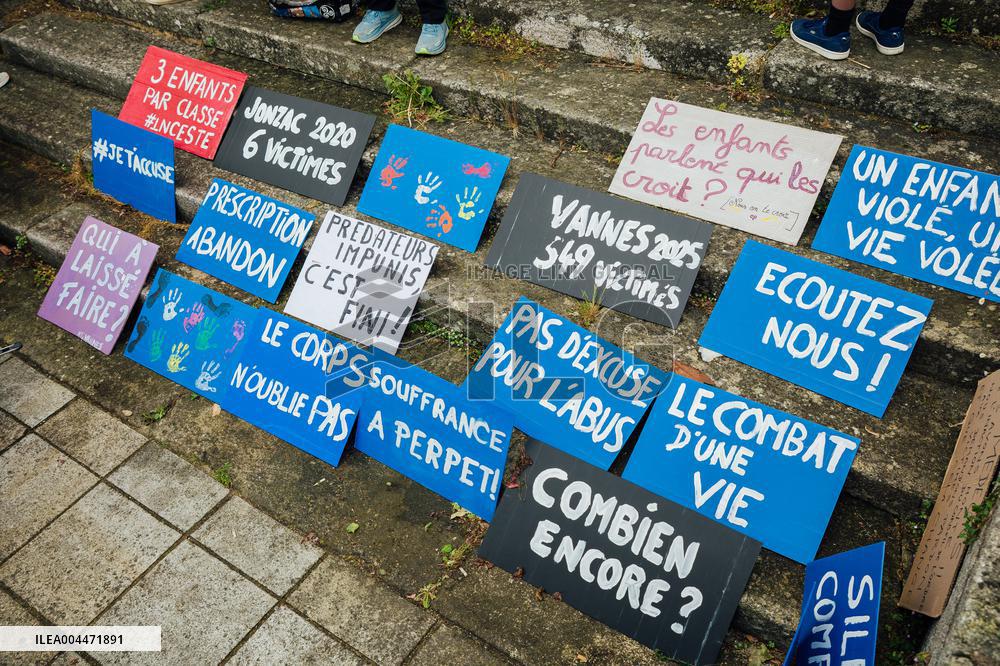 3 ENFANTS
PAR CLASSE
#INCESTE
JONZAC 2020
6 VICTIMES
#JE T'ACCUSE
PRESCRIPTION
ABANDON
QUI A
LAISSÉ
FAIRE?
PREDATEURS
IMPUNIS
C'EST
FINI!
Les enfants
parlent qui les
croit ?
[Nous on te croit]
VANNES 2025
549 VICTIMES
UN ENFAN
VIOLÉ, U
VIE VOLÉE
ECOUTEZ
NOUS !
LE CORPS
N'OUBLIE PAS
SOUFFRANCE
A PERPET!
PAS D'EXCUSE
POUR L'ABUS
LE COMBAT
D'UNE
VIE
COMBIEN
ENCORE ?
SIL
COM
IMAGE LINK GLOBAL
ILG
ILEA004471891